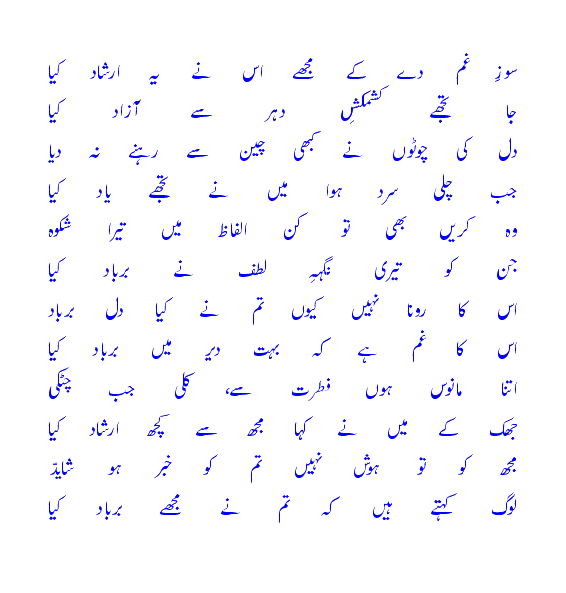 سوزِ غم دے کے مجھے اس نے یہ ارشاد کیا
جا تجھے کشمکشِ دہر سے آزاد کیا
دل کی چوٹوں نے کبھی چین سے رہنے نہ دیا
جب چلی سرد ہوا میں نے تجھے یاد کیا
وہ کریں بھی تو کن الفاظ میں تیرا شکوہ
جن کو تیری نگہِ لطف نے برباد کیا
اس کا رونا نہیں کیوں تم نے کیا دل برباد
اس کا غم ہے کہ بہت دیر میں برباد کیا
اتنا مانوس ہوں فطرت سے، کلی جب چٹکی
جھک کے میں نے کہا مجھ سے کچھ ارشاد کیا
مجھ کو تو ہوش نہیں تم کو خبر ہو شاید
لوگ کہتے ہیں کہ تم نے مجھے برباد کیا